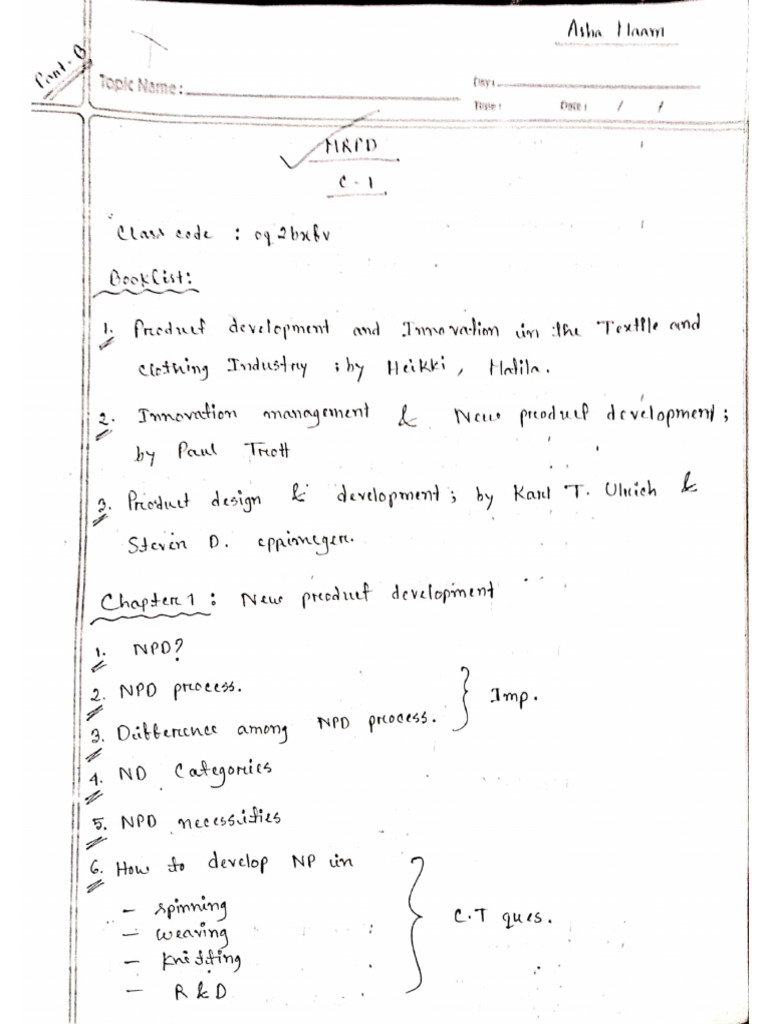 Asha Maam
Part-B
Topic Name:
Day:
Time: Date: / /
MRPD
C-1
Class code : cq2bxfv
BookList:
1. Product development and Innovation in the Textile and
clothing Industry ; by Heikki, Matila.
2. Innovation management & New product development;
by Paul Trott
3. Product design & development; by Karl T. Ulrich &
Steven D. eppimeger.
Chapter 1: New product development
1. NPD?
2. NPD process.
3. Difference among NPD process. } Imp.
4. ND Categories
5. NPD necessities
6. How to develop NP in
- spinning
- weaving
- knitting
- R&D
} C.T ques.